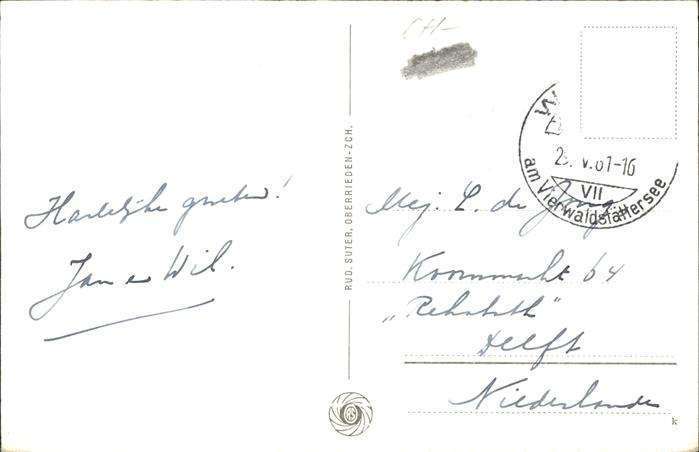 Hartelijke groeten!
Jan en Wil.
RUD. SUTER, OBERRIEDEN-ZCH.
V.61-16
VII
am Vierwaldstättersee
Mej. C. de Jong
Koornmarkt 64
„Rehoboth"
Delft
Niederlande
k